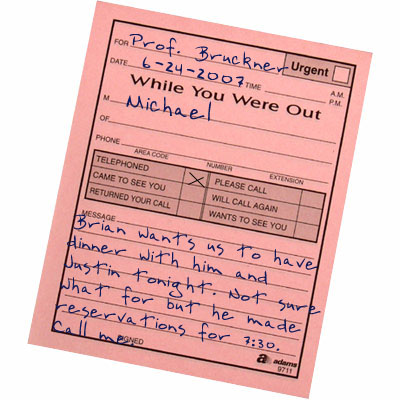 FOR Prof. Bruckner Urgent
DATE 6-24-2007 TIME A.M.
P.M.
While You Were Out
M Michael
OF
PHONE
AREA CODE NUMBER EXTENSION
TELEPHONED X PLEASE CALL
CAME TO SEE YOU WILL CALL AGAIN
RETURNED YOUR CALL WANTS TO SEE YOU
MESSAGE
Brian wants us to have
dinner with him and
Justin tonight. Not sure
what for but he made
reservations for 7:30.
Call me.
SIGNED
adams
9711